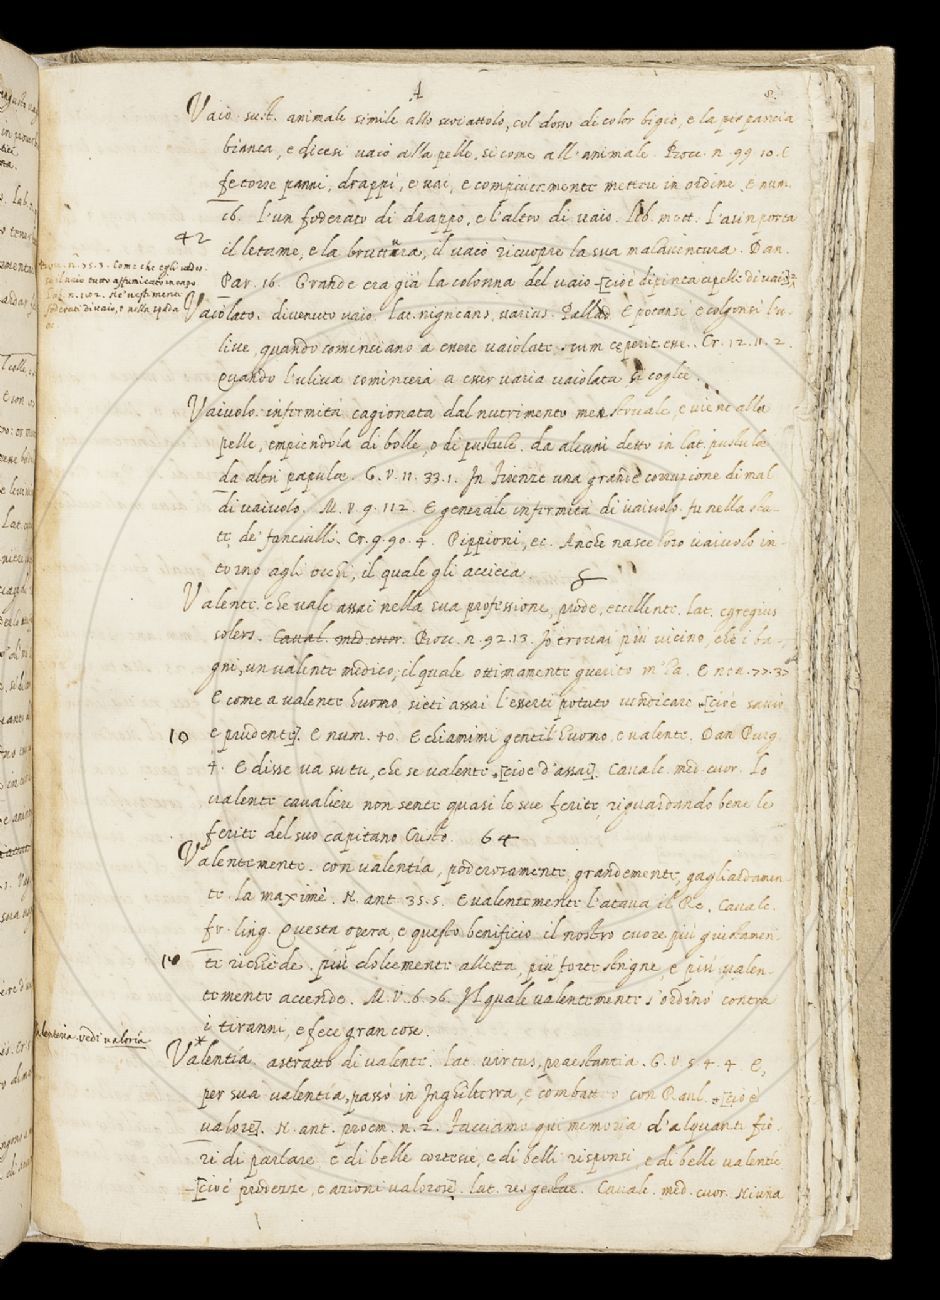 A
8.
Vaio. sust. animale simile allo scoiattolo, col dosso di color bigio, e la pur pancia
bianca, e dicesi vaio alla pelle, si come all'animale. Bocc. n. 99. 10. E
fe torre panni, drappi, e vai, e compiutamente mettere in ordine. E num.
16. l'un foderato di drappo, e l'altro di vaio. lib. mott. l'asin porta
42
il letame, e la bruttura, il vaio ricuopre la sua malaventura. Dan.
Par. 16. Grande era già la colonna del vaio [cioè dipinta a pelle di vaio]
n. 75. 3. Come che egli vedesse
il vaio tutto affumicato in capo
Lab. n. 102. Ne' vestimenti
foderati di vaio, e nella spada
Vaiolato. divenuto vaio. lat. nigricans, varius. Pallad. E potansi e colgonsi l'u-
live, quando cominciano a essere vaiolate. cum ceperit esse. Cr. 12. 11. 2.
Quando l'uliva comincerà a esser varia vaiolata si coglie.
Vaiuolo. infermità cagionata dal nutrimento menstruale, e viene alla
pelle, empiendola di bolle, o di pustule. da alcuni detto in lat. pustulae
da altri papulae. G. V. 11. 33. 1. In Firenze una grande corruzione di mal
di vaiuolo. M. V. 9. 112. E generale infermità di vaiuolo fu nella sta-
te de' fanciulli. Cr. 9. 90. 4. Pippioni, ec. Anche nasce loro vaiuolo in-
torno agli occhi, il quale gli accieca.
Valente. che vale assai nella sua professione, prode, eccellente. lat. egregius
solers. Caval. med. cuor. Bocc. n. 92. 13. Io trovai più vicino, che i ba-
gni, un valente medico, il quale ottimamente guerito m'ha. E nov. 77. 37
E come a valente huomo, sieti assai l'esserti potuto vendicare [cioè savio
10
e prudente]. E num. 40. E chiamimi gentil huomo, e valente. Dan Purg.
4. E disse va su tu, che se valente [cioè d'assai]. Cavalc. med. cuor. Lo
valente cavaliere non sente quasi le sue ferite, riguardando bene le
ferite del suo capitano Cristo. 64
Valentemente. con valentía, poderosamente, grandemente, gagliardamen-
te. la. maximè. N. ant. 35. 5. E valentemente l'atava il Re. Cavalc.
fr. ling. Questa opera, e questo benificio il nostro cuore più
10
te richiede. più dolcemente alletta, più forte strigne e più valen-
temente accende. M. V. 6. 76. Il quale valentemente s'ordinò contra
i tiranni, e fece gran cose.
valenteria. vedi valoría
Valentía. astratto di valente. lat. virtus, praestantia. G. V. 5. 4. 4. E,
per sua valentía, passò in Inghilterra, e combatteo con Raul. [cioè
valore]. N. ant. proem. n. 2. Facciamo qui memoria d'alquanti fio-
ri di parlare e di belle cortesie, e di belli risponsi e di belle valentíe
[cioè prodezze, e azioni valorose]. lat. res gestae. Cavalc. med. cuor. Niuna